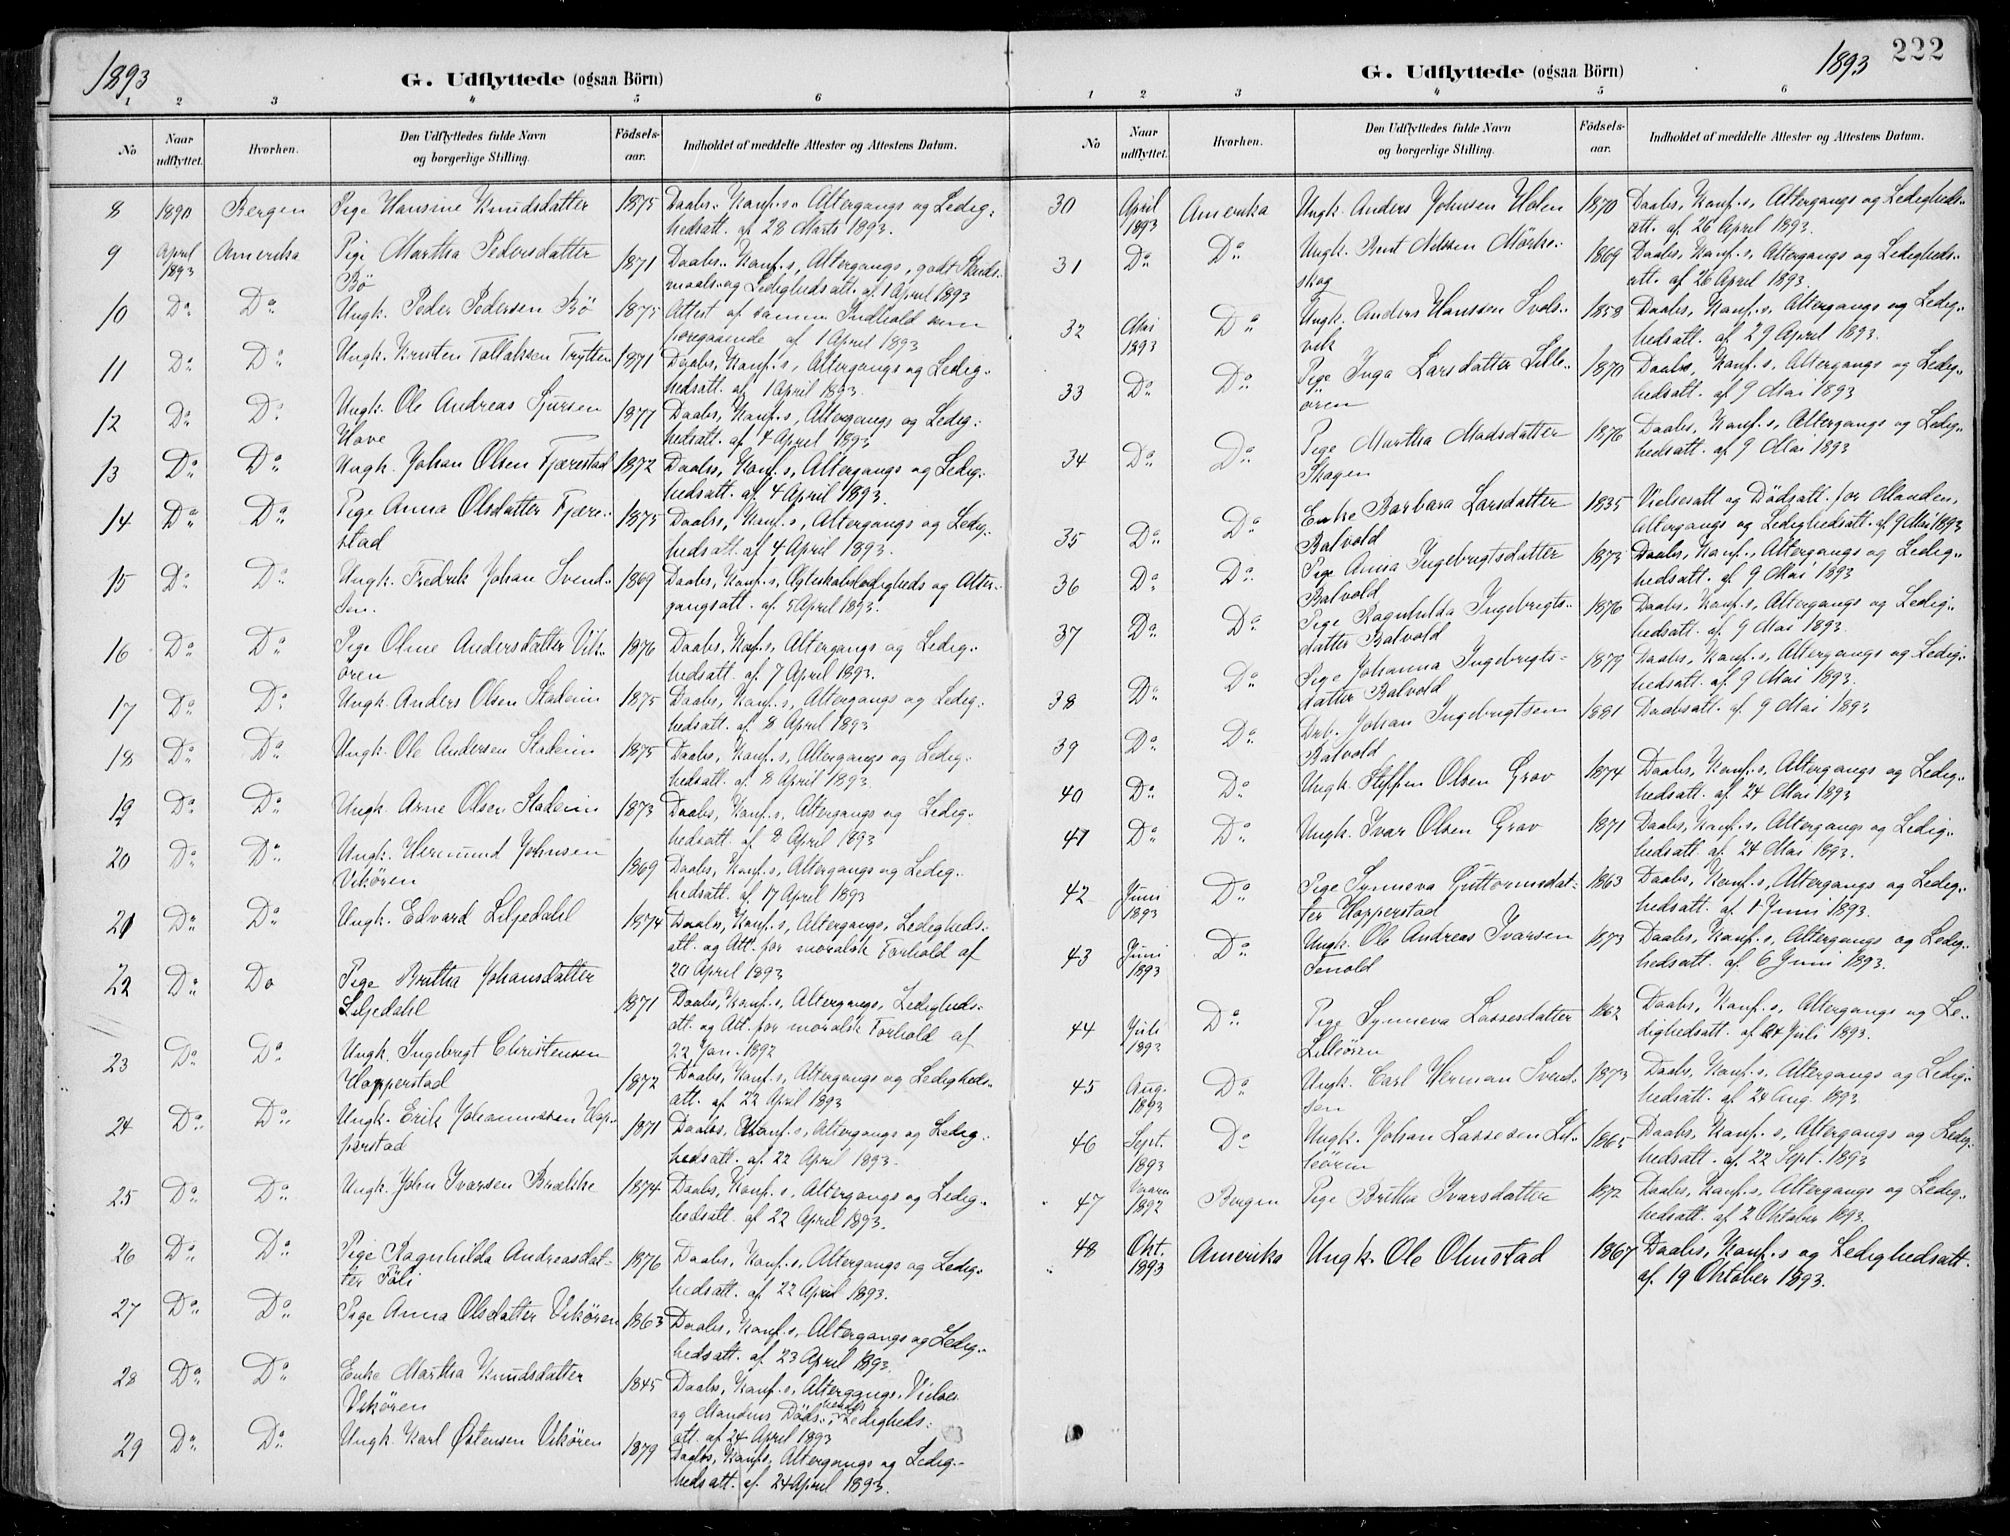 1893
G. Udflyttede (ogsaa Börn)
1 2 3 4 5 6
No
Naar udflyttet.
Hvorhen.
Den Udflyttedes fulde Navn og borgerlige Stilling.
Födsels-aar.
Indholdet af meddelte Attester og Attestens Datum.
8 1890 Bergen Pige Hansine Knudsdatter 1875 Daabs.. Konf.s.. Altergangs og Ledig:
hedsatt. af 28 Marts 1893.
9 April 1893 Amerika Pige Martha Pedersdatter 1871 Daabs.. Konf.s, Altergangs, godt Skuds..
Bö maals- og Ledighedsatt. af 1 April 1893
10 Do Do Ungk. Peder Pedersen Bö 1875 Attest af samme Indhold som
foregaaende af 1 April 1893
11 Do Do Ungk. Kristen Tollaksen Trytten 1871 Daabs, Konf.s, Altergangs og Ledig:
hedsatt. af 1 April 1893.
12 Do Do Ungk. Ole Andreas Sjursen 1877 Daabs, Konf.s, Altergangs og Ledig:
Hove hedsatt. af 4 April 1893
13 Do Do Ungk. Johan Olsen Fjærestad 1872 Daabs, Konf.s, Altergangs og Ledig:
hedsatt. af 4 April 1893.
14 Do Do Pige Anna Olsdatter Fjære.. 1875 Daabs, Konf.s, Altergangs og Ledig:
stad hedsatt. af 4 April 1893.
15 Do Do Ungk. Fredrik Johan Svend.. 1869 Daabs, Konf.s, Ægteskabsledigheds og Alter-
sen. gangsatt. af 5 April 1893.
16 Do Do Pige Oline Andersdatter Vik.. 1876 Daabs, Konf.s, Altergangs og Ledig..
ören hedsatt. af 7 April 1893.
17 Do Do Ungk. Anders Olsen Stadeim 1875 Daabs, Konf.s, Altergangs og Ledig:
hedsatt. af 8 April 1893
18 Do Do Ungk. Ole Andersen Stadeim 1875 Daabs, Konf.s, Altergangs og Ledig.
hedsatt. af 8 April 1893.
19 Do Do Ungk. Arne Olsen Stadeim 1873 Daabs, Konf.s, Altergangs og Ledig.
hedsatt. af 8 April 1893
20 Do Do Ungk. Hermund Johnsen 1869 Daabs, Konf.s, Altergangs og Ledig..
Vikören hedsatt. af 17 April 1893
21 Do Do Ungk. Edvard Liljedahl 1874 Daabs, Konf.s, Altergangs, Ledigheds.
att. og Att. for moralsk Forhold af
20 April 1893
22 Do Do Pige Britha Johansdatter 1871 Daabs, Konf.s, Altergangs, Ledigheds.
Liljedahl att. og Att. for moralsk Forhold af
22 Jan. 1892
23 Do Do Ungk. Ingebrigt Christensen 1872 Daabs, Konf.s, Altergangs og Ledigheds.
Hopperstad att. af 22 April 1893
24 Do Do Ungk. Erik Johannessen Hop- 1871 Daabs, Konf.s, Altergangs og Ledig..
perstad hedsatt. af 22 April 1893.
25 Do Do Ungk. John Ivarsen Brække 1874 Daabs, Konf.s, Altergangs og Ledig..
hedsatt. af 22 April 1893.
26 Do Do Pige Ragnhilda Andreasdat- 1876 Daabs, Konf.s, Altergangs og Ledig..
ter Föli hedsatt. af 22 April 1893.
27 Do Do Pige Anna Olsdatter Vikören 1863 Daabs, Konf.s, Altergangs og Ledig..
hedsatt. af 23 April 1893.
28 Do Do Enke Martha Knudsdatter 1845 Daabs, Konf.s, Altergangs, Vielses
Vikören og Mandens Döds.. hendes Ledigheds:
att. af 24 April 1893
29 Do Do Ungk. Karl Östensen Vikören 1879 Daabs, Konf.s, Altergangs og Ledig..
hedsatt. af 24 April 1893.
1893 222
G. Udflyttede (ogsaa Börn)
1 2 3 4 5 6
No
Naar udflyttet.
Hvorhen.
Den Udflyttedes fulde Navn og borgerlige Stilling.
Födsels-aar.
Indholdet af meddelte Attester og Attestens Datum.
30 April 1893 Amerika Ungk. Anders Johnsen Holen 1870 Daabs, Konf.s, Altergangs og Ledigheds..
att. af 26 April 1893.
31 Do Do Ungk. Bent Nilssen Mörke.. 1869 Daabs, Konf.s, Altergangs og Ledigheds..
skog att. af 26 April 1893.
32 Mai 1893 Do Ungk. Anders Hanssen Svols.. 1858 Daabs, Konf.s, Altergangs og Ledig..
vik hedsatt. af 29 April 1893.
33 Do Do Pige Inga Larsdatter Lille.. 1870 Daabs, Konf.s, Altergangs og Ledig..
ören hedsatt. af 9 Mai 1893
34 Do Do Pige Martha Madsdatter 1876 Daabs, Konf.s, Altergangs og Ledig..
Skogen hedsatt. af 9 Mai 1893
35 Do Do Enke Barbara Larsdatter 1835 Vielsesatt og Dödsatt. for Manden,
Balvold Altergangs og Ledighedsatt. af 9 Mai 1893
36 Do Do Pige Anna Ingebrigtsdatter 1873 Daabs, Konf.s, Altergangs og Ledig..
Balvold hedsatt. af 9 Mai 1893
37 Do Do Pige Ragnhilda Ingebrigts.. 1876 Daabs, Konf.s, Altergangs og Ledig..
datter Balvold hedsatt. af 9 Mai 1893.
38 Do Do Pige Johanna Ingebrigts- 1879 Daabs, Konf.s, Altergangs og Ledig..
datter Balvold hedsatt. af 9 Mai 1893.
39 Do Do Drb. Johan Ingebrigtsen 1881 Daabsatt. af 9 Mai 1893
Balvold
40 Do Do Ungk. Steffen Olsen Grov 1874 Daabs, Konf.s, Altergangs og Ledig..
hedsatt. af 24 Mai 1893
41 Do Do Ungk. Ivar Olsen Grov 1871 Daabs, Konf.s, Altergangs og Ledig..
hedsatt. af 24 Mai 1893.
42 Juni 1893 Do Pige Synneva Guttormsdat- 1863 Daabs, Konf.s, Altergangs og Ledig..
ter Hopperstad hedsatt. af 1 Juni 1893.
43 Juni 1893 Do Ungk. Ole Andreas Ivarsen 1873 Daabs, Konf.s, Altergangs og Ledig..
Tenold hedsatt. af 6 Juni 1893.
44 Juli 1893 Do Pige Synneva Lassesdatter 1862 Daabs, Konf.s, Altergangs og Le..
Lilleören dighedsatt. af 24 Juli 1893.
45 Aug. 1893 Do Ungk. Carl Herman Svend.. 1873 Daabs, Konf.s, Altergangs og Ledig..
sen hedsatt. af 24 Aug 1893.
46 Sept. 1893 Do Ungk. Johan Lassesen Lil.. 1865 Daabs, Konf.s, Altergangs og Ledig..
leören hedsatt. af 22 Sept. 1893
47 Vaaren 1892 Bergen Pige Britha Ivarsdatter 1872 Daabs, Konf.s, Altergangs og Ledig..
hedsatt. af 2 Oktober 1893.
48 Okt. 1893 Amerika Ungk. Ole Olmstad 1867 Daabs, Konf.s og Ledighedsatt.
af 19 Oktober 1893.